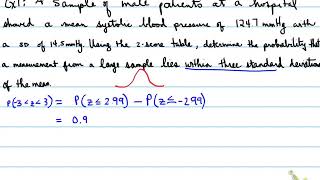 Q1: A Sample of male patients at a hospital
showed a mean systolic blood pressure of 124.7 mmHg with
a SD of 14.5 mmHg. Using the Z-score table, determine the probability that
a measurement from a large sample lies within three standard deviations
of the mean.
P(-3<z<3) = P(z≤2.99) - P(z≤-2.99)
= 0.9